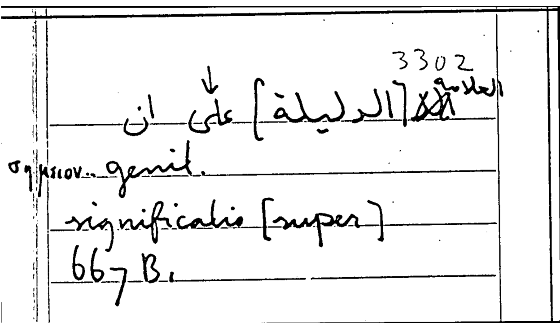 3302
العلامة [الدليلة] على ان
σημειον.. genit.
significatis [super]
667 B.